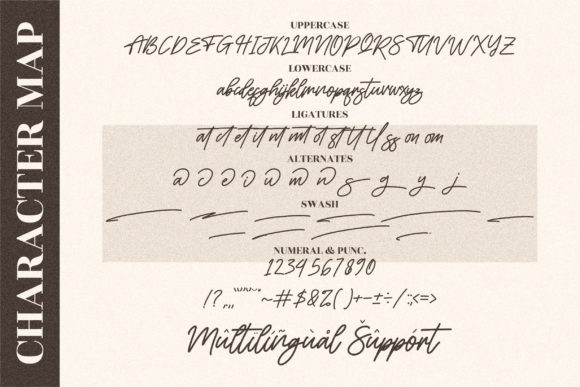 CHARACTER MAP
UPPERCASE
ABCDEFGHIJKLMNOPQRSTUVWXYZ
LOWERCASE
abcdefghijklmnopqrstuvwxyz
LIGATURES
at ct et it nt mt ot st tt ll ss on om
ALTERNATES
a c e i u m n s g y j
SWASH
NUMERAL & PUNC.
1234567890
~#$&%()+-±÷/:;<=>
Mûltïlíñgùål Šûppórt